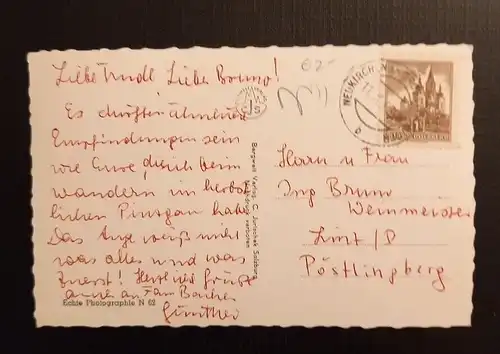 Liebe Trude Lieber Bruno!
Es dürften ähnliche
Empfindungen sein
wie Eure, die ich beim
wandern im herbst-
lichen Pinzgau habe.
Das Auge weiß nicht
was alles und was
zuerst! Herzliche Grüße
auch an Fam
Günther
Echte Photographie N 62
Bergwelt Verlag C. Jurischek Salzburg
Nachdruck verboten
JS
NEUKIRCHEN
Herrn u Frau
Ing Bruno
Weinmeister
Linz/D
Pöstlingberg